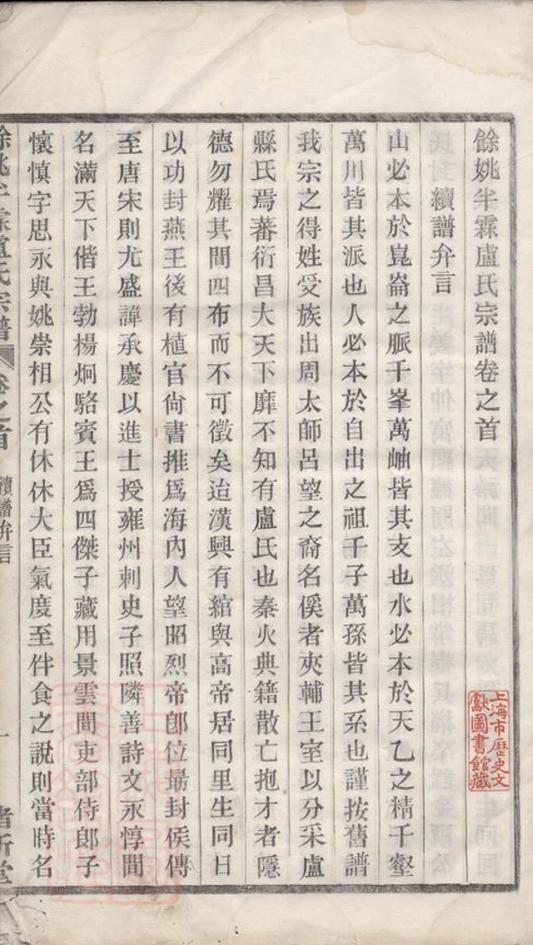 餘姚半霖盧氏宗譜卷之首
續譜弁言
山必本於崑崙之脈千峯萬岫皆其支也水必本於天乙之精千壑
萬川皆其派也人必本於自出之祖千子萬孫皆其系也謹按舊譜
我宗之得姓受族出周太師呂望之裔名傒者夾輔王室以分采盧
縣氏焉蕃衍昌大天下靡不知有盧氏也秦火典籍散亡抱才者隱
德勿耀其間四布而不可徵矣迨漢興有綰與高帝居同里生同日
以功封燕王後有植官尙書推爲海內人望昭烈帝卽位最封侯傳
至唐宋則尤盛諱承慶以進士授雍州刺史子照隣善詩文永惇間
名滿天下偕王勃楊炯駱賓王爲四傑子藏用景雲間吏部侍郎子
懷慎字思永與姚崇相公有休休大臣氣度至伴食之說則當時名
餘姚半霖盧氏宗譜
卷之首
續譜弁言
一
上海市歷史文
獻圖書館藏